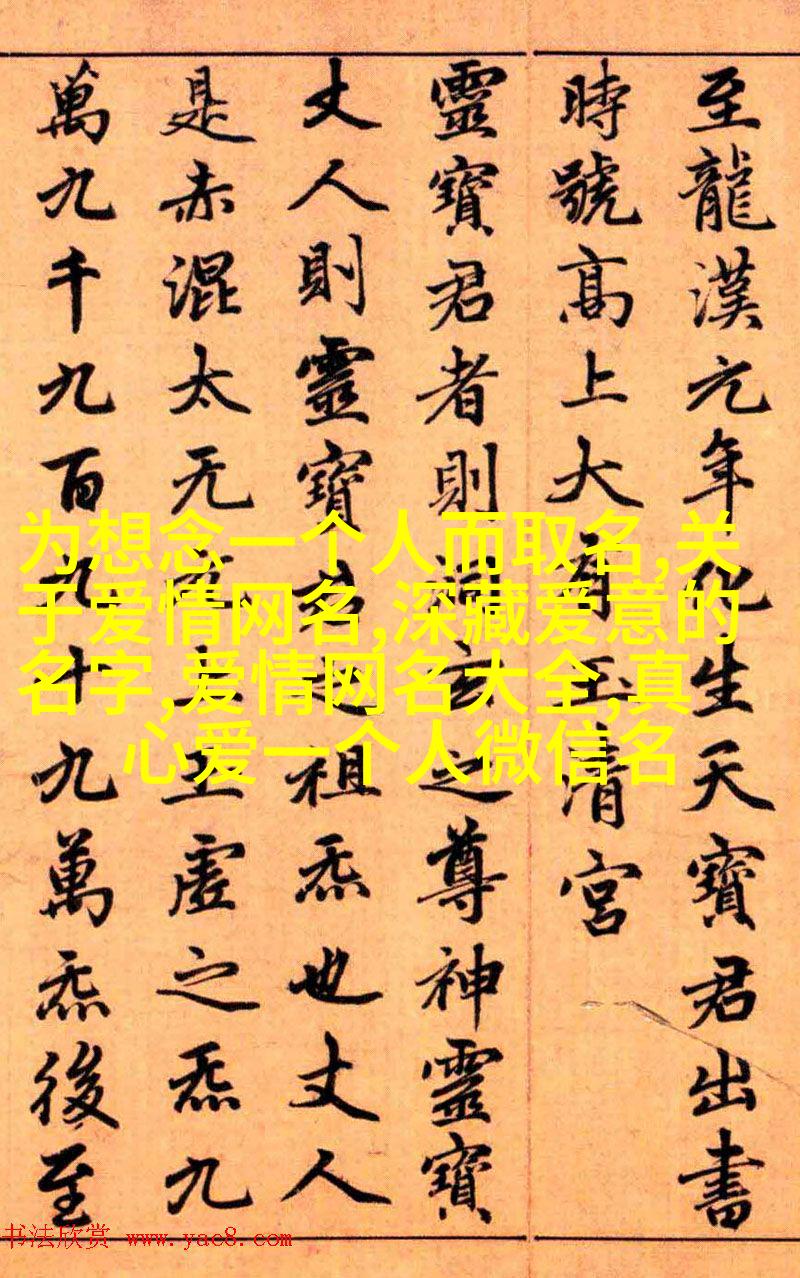 至龍漢元年化生天寶君出書
時號高上大有玉清宮
靈寶君者則洞玄之尊神靈寶
丈人則靈寶君之祖炁也丈人
是赤混太无元上玉虛之炁九
萬九千九百九十九萬炁後至
为想念一个人而取名,关
于爱情网名,深藏爱意的
名字,爱情网名大全,真
心爱一个人微信名
书法欣赏 www.yac8.com